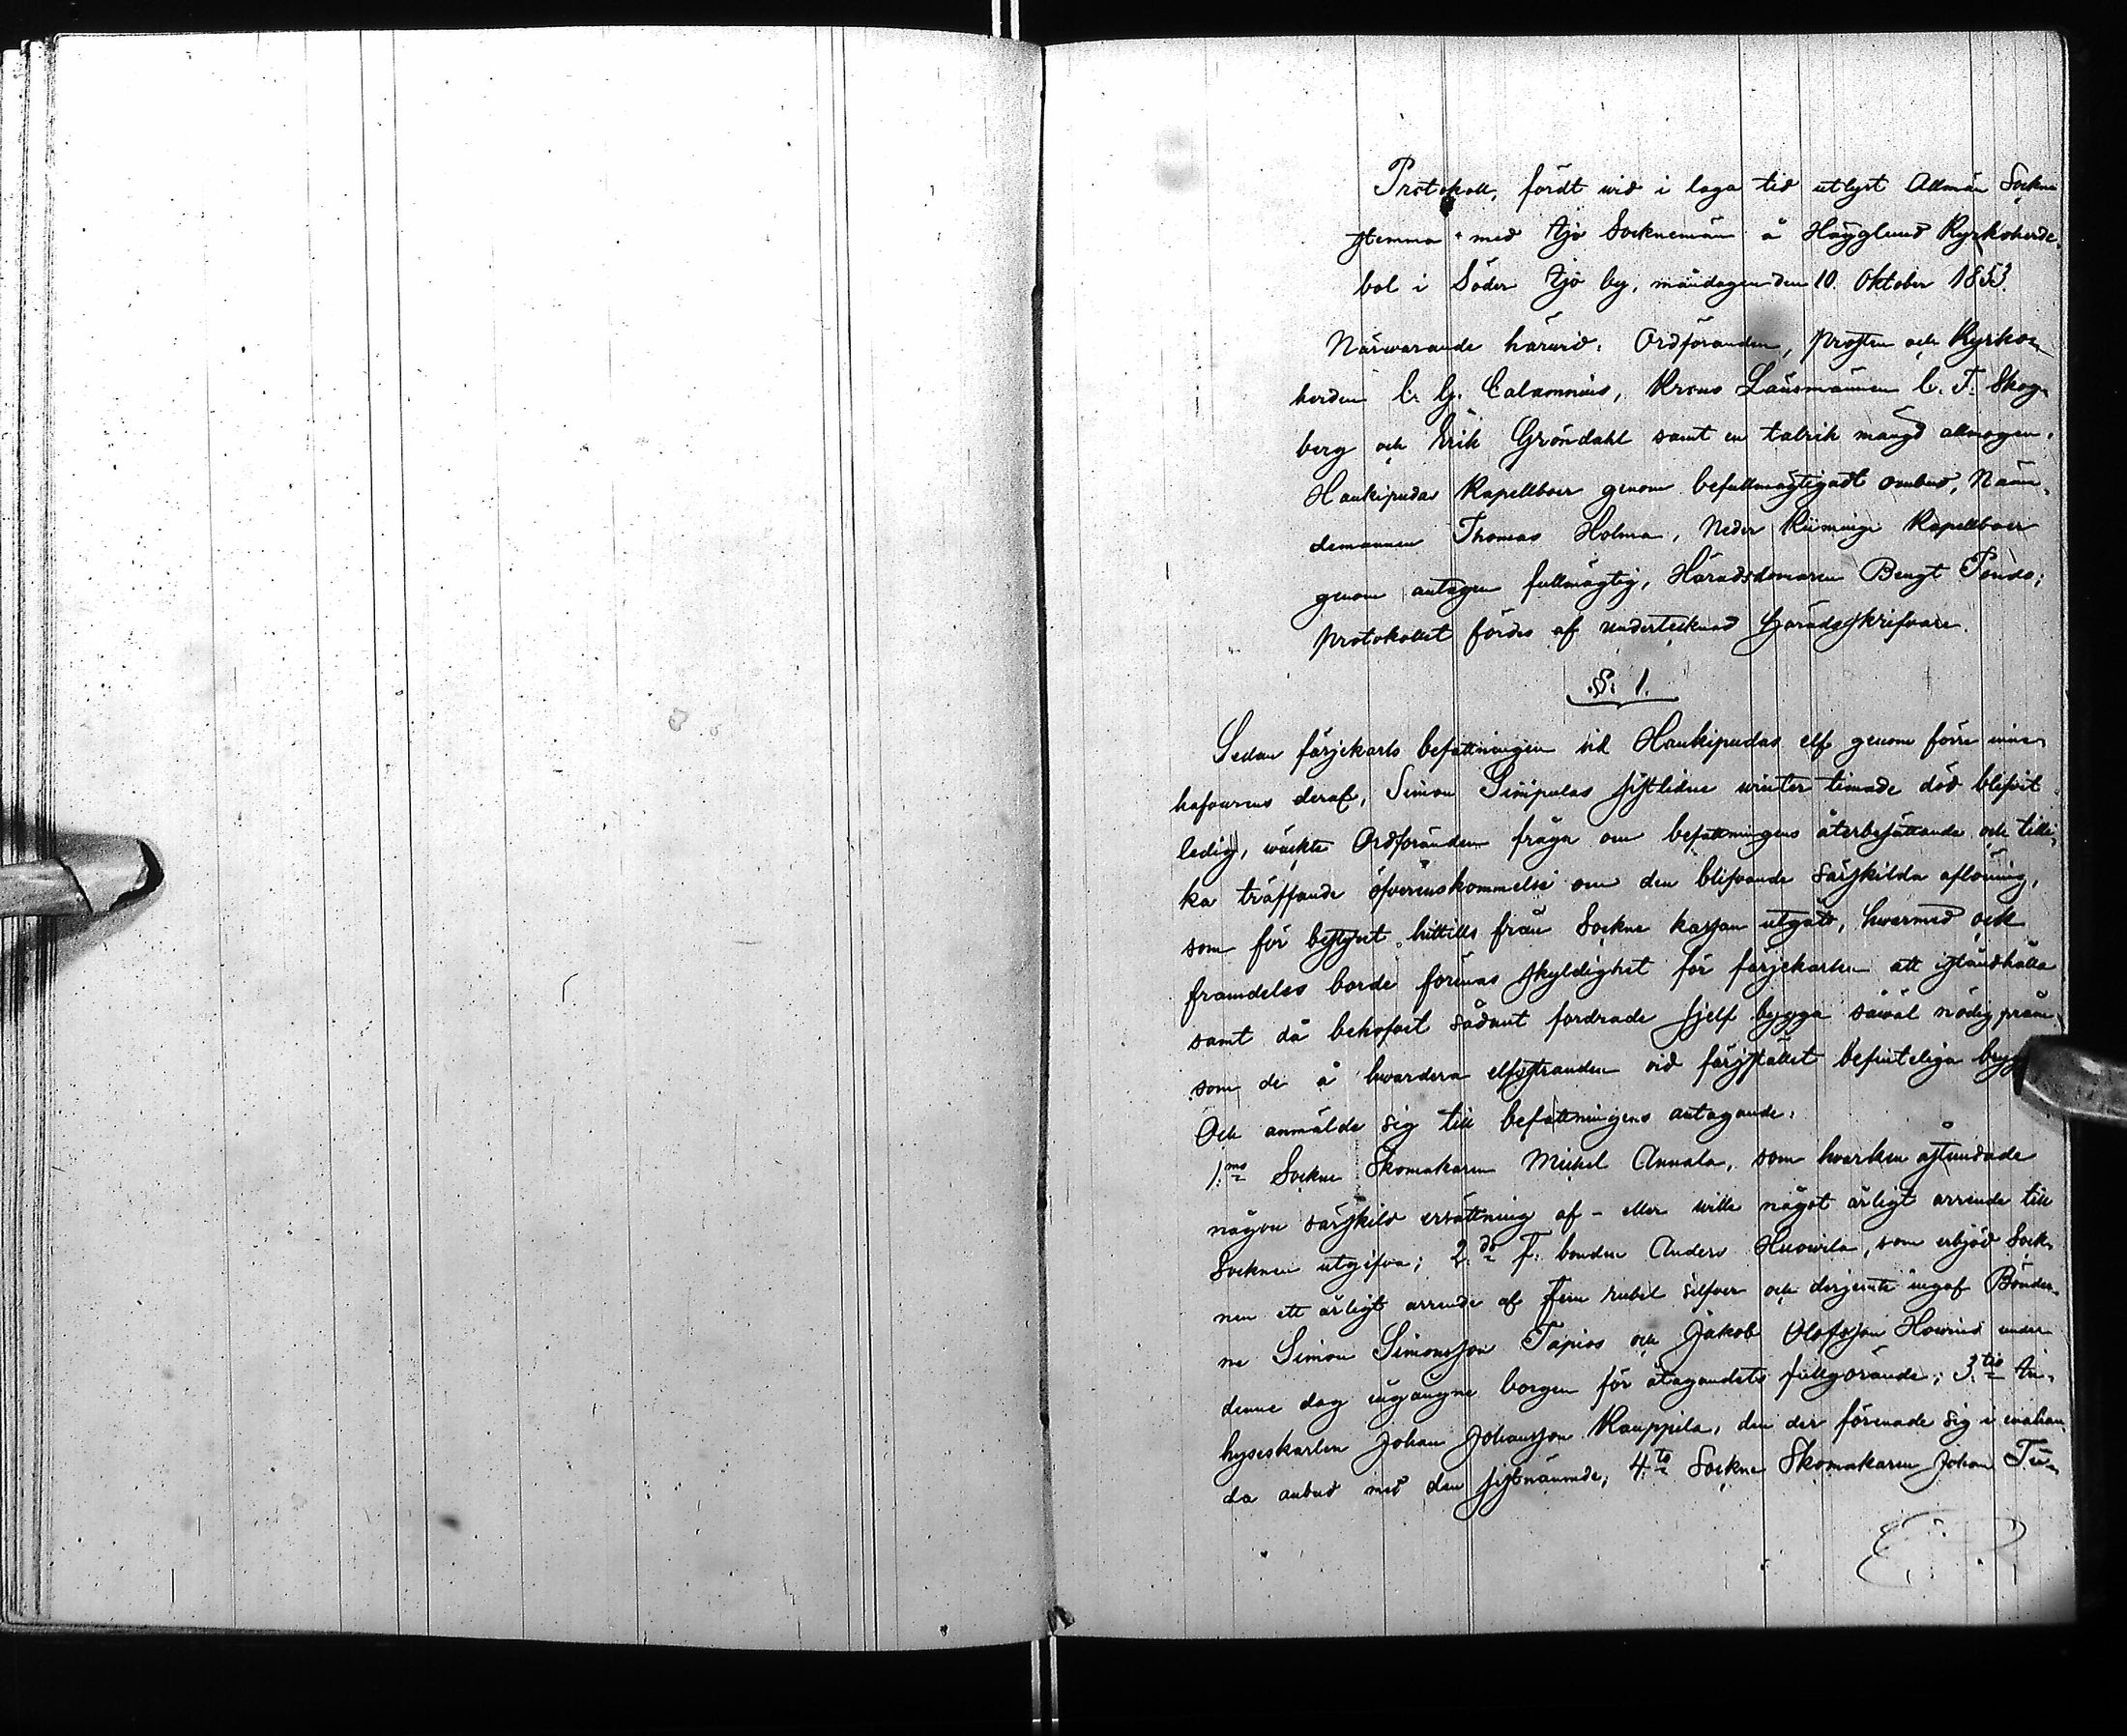 Protokoll, fördt wid i laga tid utlyst Allmän Sockne
stemma med Ijo Socknemän å Hägglund Kyrkoherde-
bol i Söder Ijo by, måndagen den 10. Oktober 1853.
Närwarande härwid: Ordföranden, Prosten och Kyrkos-
herden C. G. Calamnius, Krono Länsmännen C. T. Skog-
berg och Erik Gröndahl samt en talrik mängd allmogen.
Haukipudas Kapellboer genom befullmägtigadt ombud, Näm-
demannen Thomas Holma, Neder Kiiminge Kapellboer
genom antagen fullmägtig, Häradsdomaren Bengt
Protokollet fördes af undertecknad Häradsskrifvare.
§. 1.
Sedan färjekarls befattningen vid Haukipudas elf genom förre inne-
hafvarens deraf, Simon sistlidne winter timade död blifvit
ledig, wäckte Ordföranden fråga om befattningens återbesättande och tilli-
ka träffande öfverenskommelse om den blifvande särskilda aflöning,
som för bestyret hittills från Sockne kassan utgått, hwarmed ock
framdeles borde förenas skyldighet för färjekarlen att iståndhålla
samt då behofvet sådant fordrade sjelf bygga såwäl nödig pråm
som de å hwardera elfstranden vid färjstället befinteliga
Och anmälde sig till befattningens antagande:
1:mo Sockne Skomakaren Michel Annala, som hwarken åstundade
någon särskild ersättning af - eller wille något årligt arrende till
Socknen utgifva; 2:do T. bonden Anders Huowila, som erbjöd Sock-
nen ett årligt arrende af Fem rubel silfver och derjemte ingaf Bönder-
ne Simon Simonsson Tapios och Jakob Olofsson under
denne dag ingångne borgen för åtagandets fullgörande; 3:tio In-
hyseskarlen Johan Johansson Kauppila, den der förenade sig i enahan-
da anbud med den sistnämnde; 4:to Sockne Skomakaren Johan